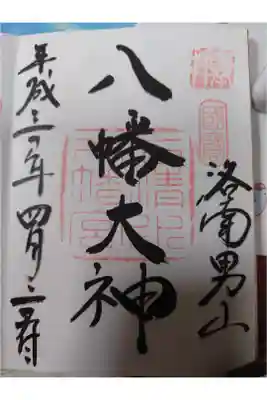 國寶
洛南男山
八幡大神
石清水八幡宮
平成 年 四月